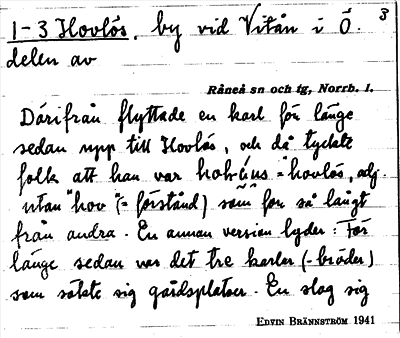 1-3 Hovlös, by vid Vitån i Ö. 3
delen av
Råneå sn och tg, Norrb. l.
Därifrån flyttade en karl för länge
sedan upp till Hovlös, och då tyckte
folk att han var = hovlös, adj.
utan "hov" (= förstånd) som for så långt
från andra. En annan version lyder: För
länge sedan var det tre karlar (- bröder)
som sökte sig gårdsplatser. En slog sig
EDVIN BRÄNNSTRÖM 1941